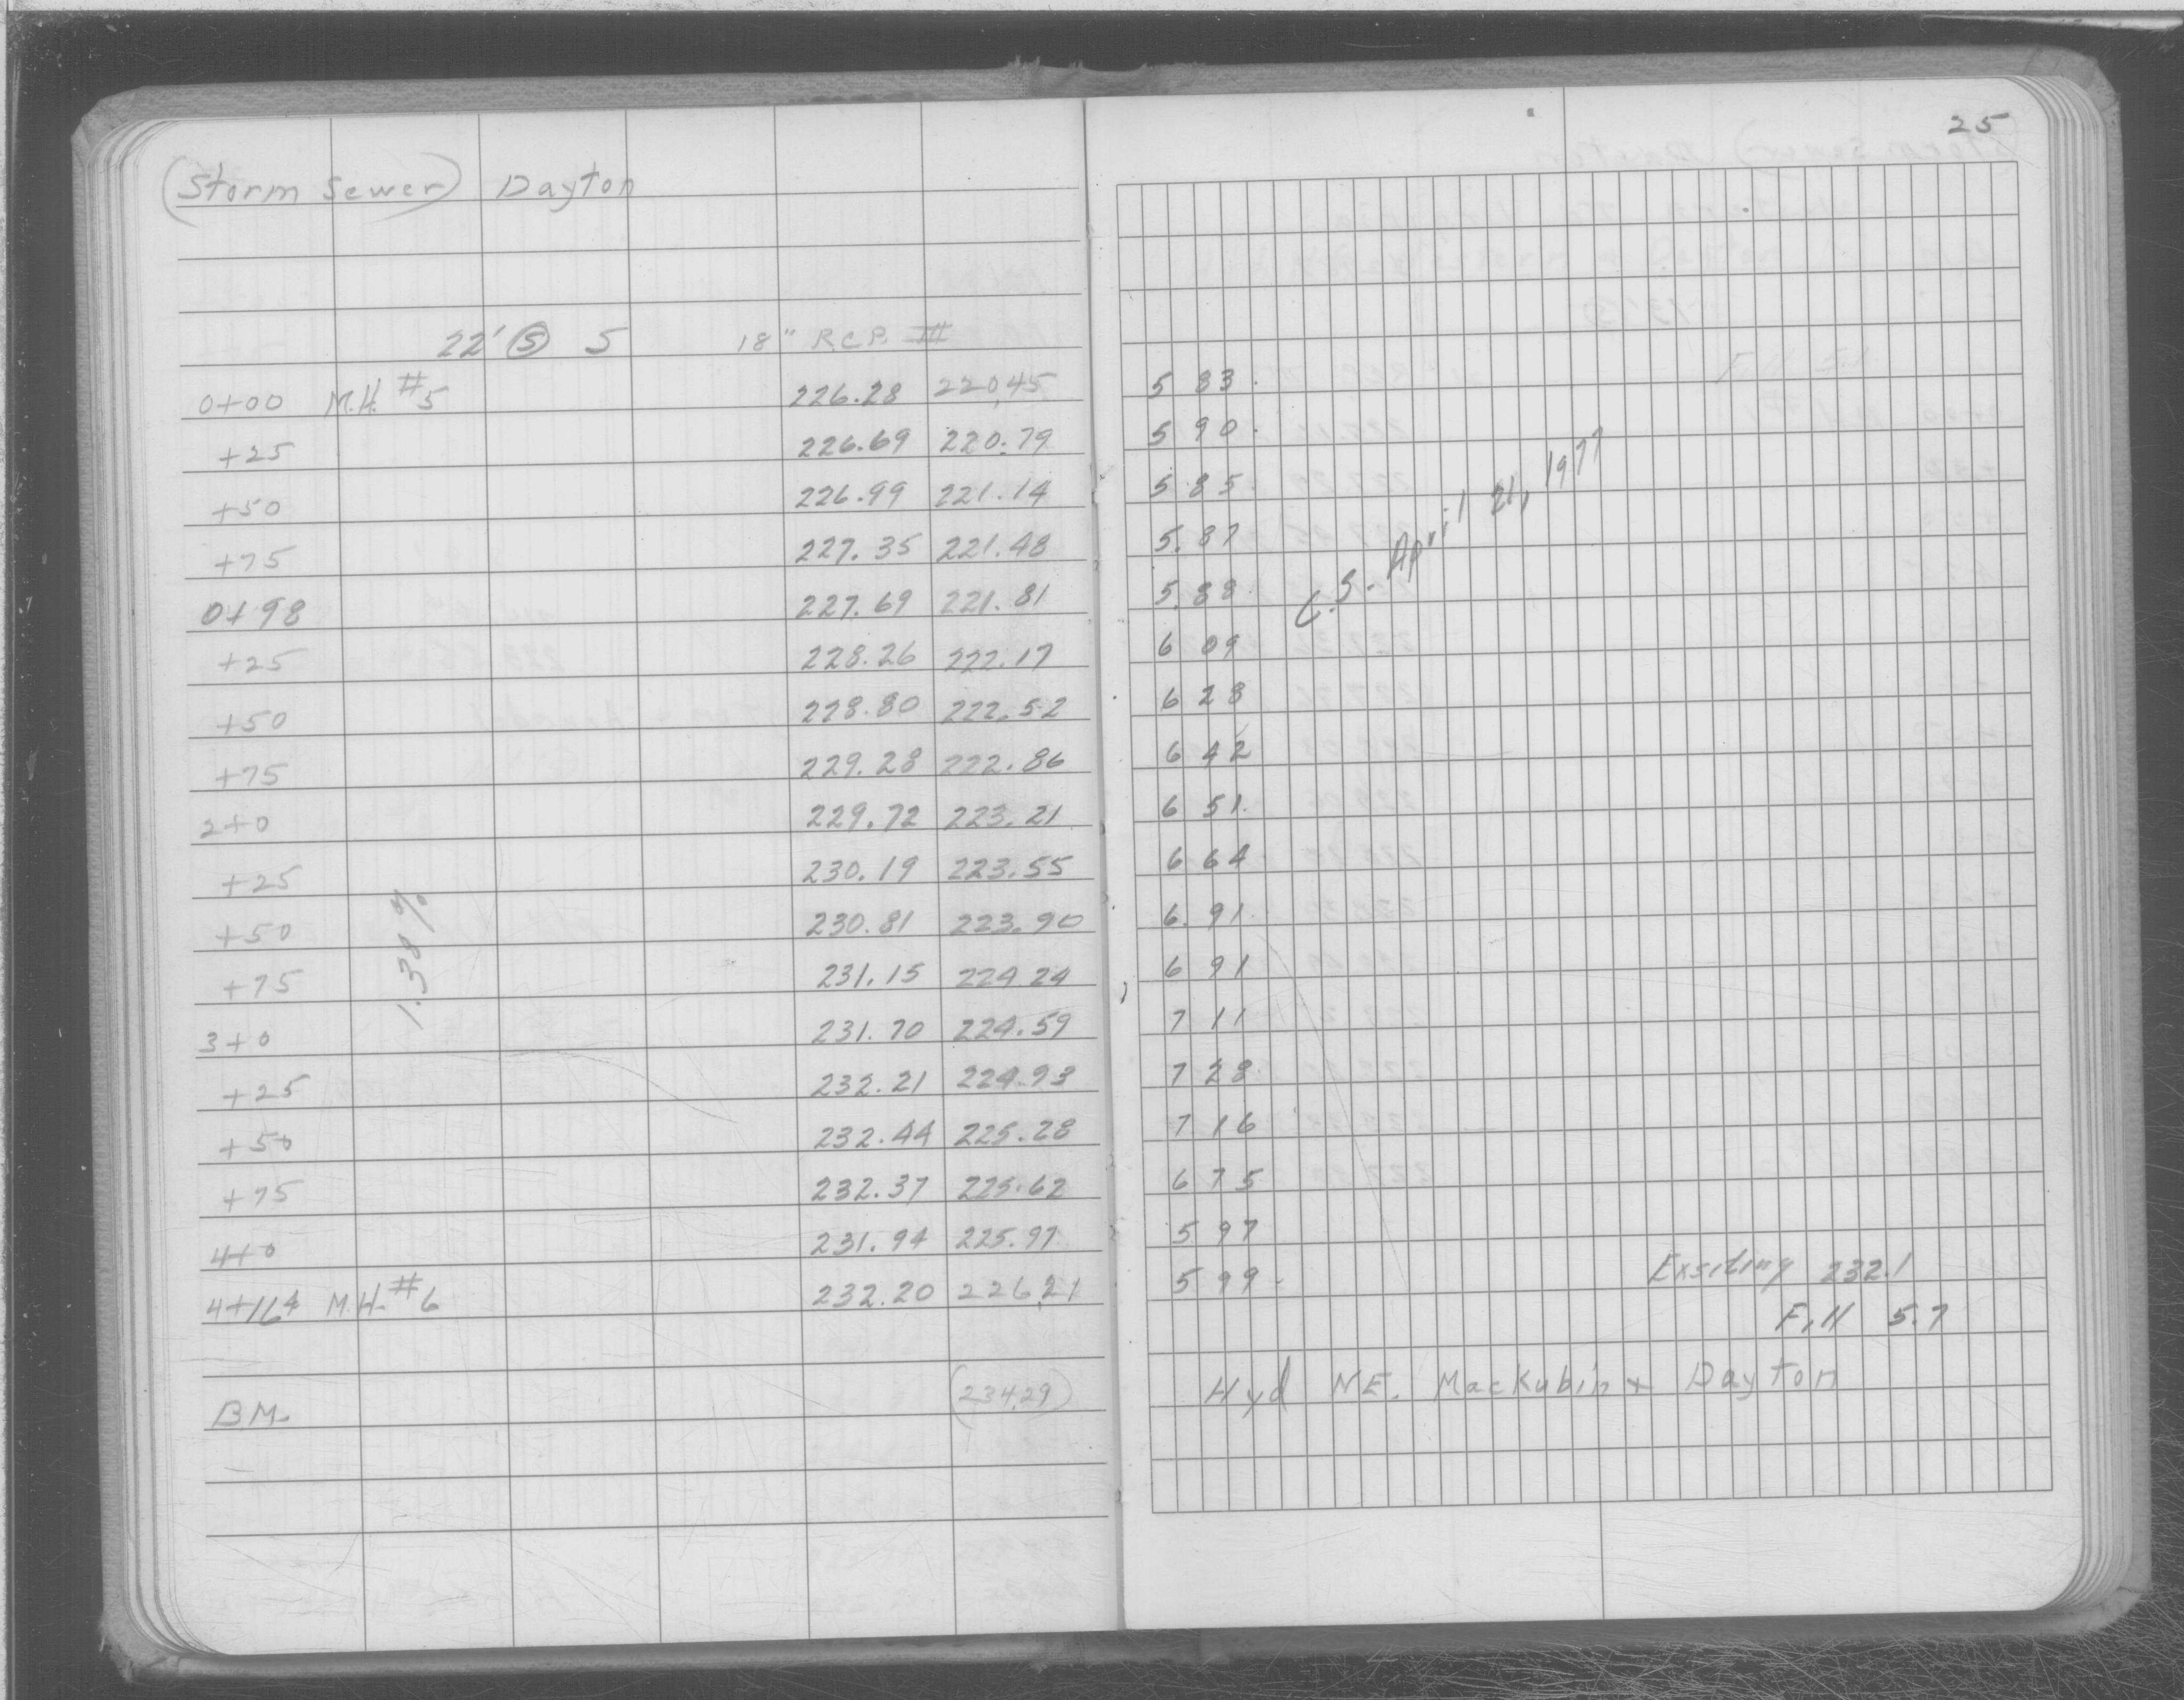 25
(Storm Sewer) Dayton
22' Ⓢ S 18" R.C.P. III
0+00 M.H. #5 226.28 220.45 5 83
+25 226.69 220.79 5 90
+50 226.99 221.14 5 85
+75 227.35 221.48 5.87
0+98 227.69 221.81 5.88
+25 228.26 222.17 6 09
+50 228.80 222.52 6 28
+75 229.28 222.86 6 42
2+0 229.72 223.21 6 51
+25 230.19 223.55 6 64
+50 230.81 223.90 6.91
+75 231.15 224 24 6 91
3+0 231.70 224.59 7 11
+25 232.21 224.93 7 28
+50 232.44 225.28 7 16
+75 232.37 225.62 6 75
4+0 231.94 225.97 5 97
4+164 M.H. #6 232.20 226.21 5 99
1.38%
April 21, 1977
Exsiting 232.1
Fill 5.7
B.M. (234.29) Hyd NE. Mackubin + Dayton